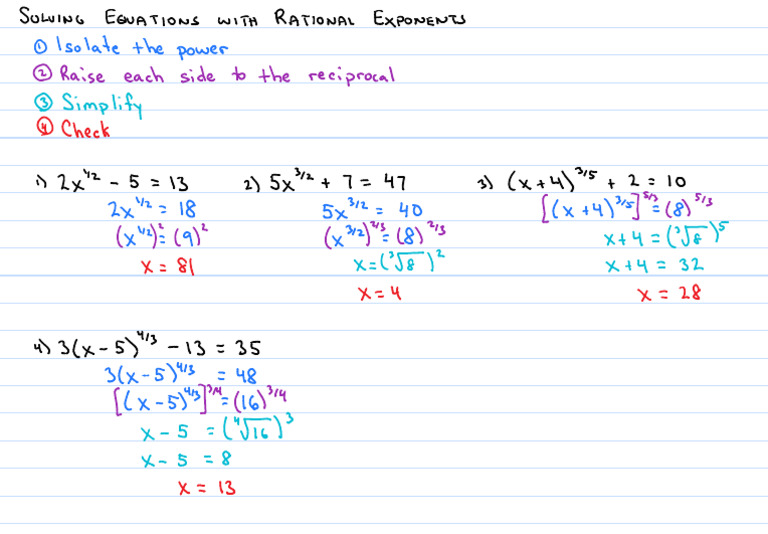 Solving Equations with Rational Exponents
① Isolate the power
② Raise each side to the reciprocal
③ Simplify
④ Check
1) 2x^(1/2) - 5 = 13
2x^(1/2) = 18
(x^(1/2))^2 = (9)^2
x = 81
2) 5x^(3/2) + 7 = 47
5x^(3/2) = 40
(x^(3/2))^(2/3) = (8)^(2/3)
x = (³√8)^2
x = 4
3) (x + 4)^(3/5) + 2 = 10
[(x + 4)^(3/5)]^(5/3) = (8)^(5/3)
x + 4 = (³√8)^5
x + 4 = 32
x = 28
4) 3(x - 5)^(4/3) - 13 = 35
3(x - 5)^(4/3) = 48
[(x - 5)^(4/3)]^(3/4) = (16)^(3/4)
x - 5 = (⁴√16)^3
x - 5 = 8
x = 13